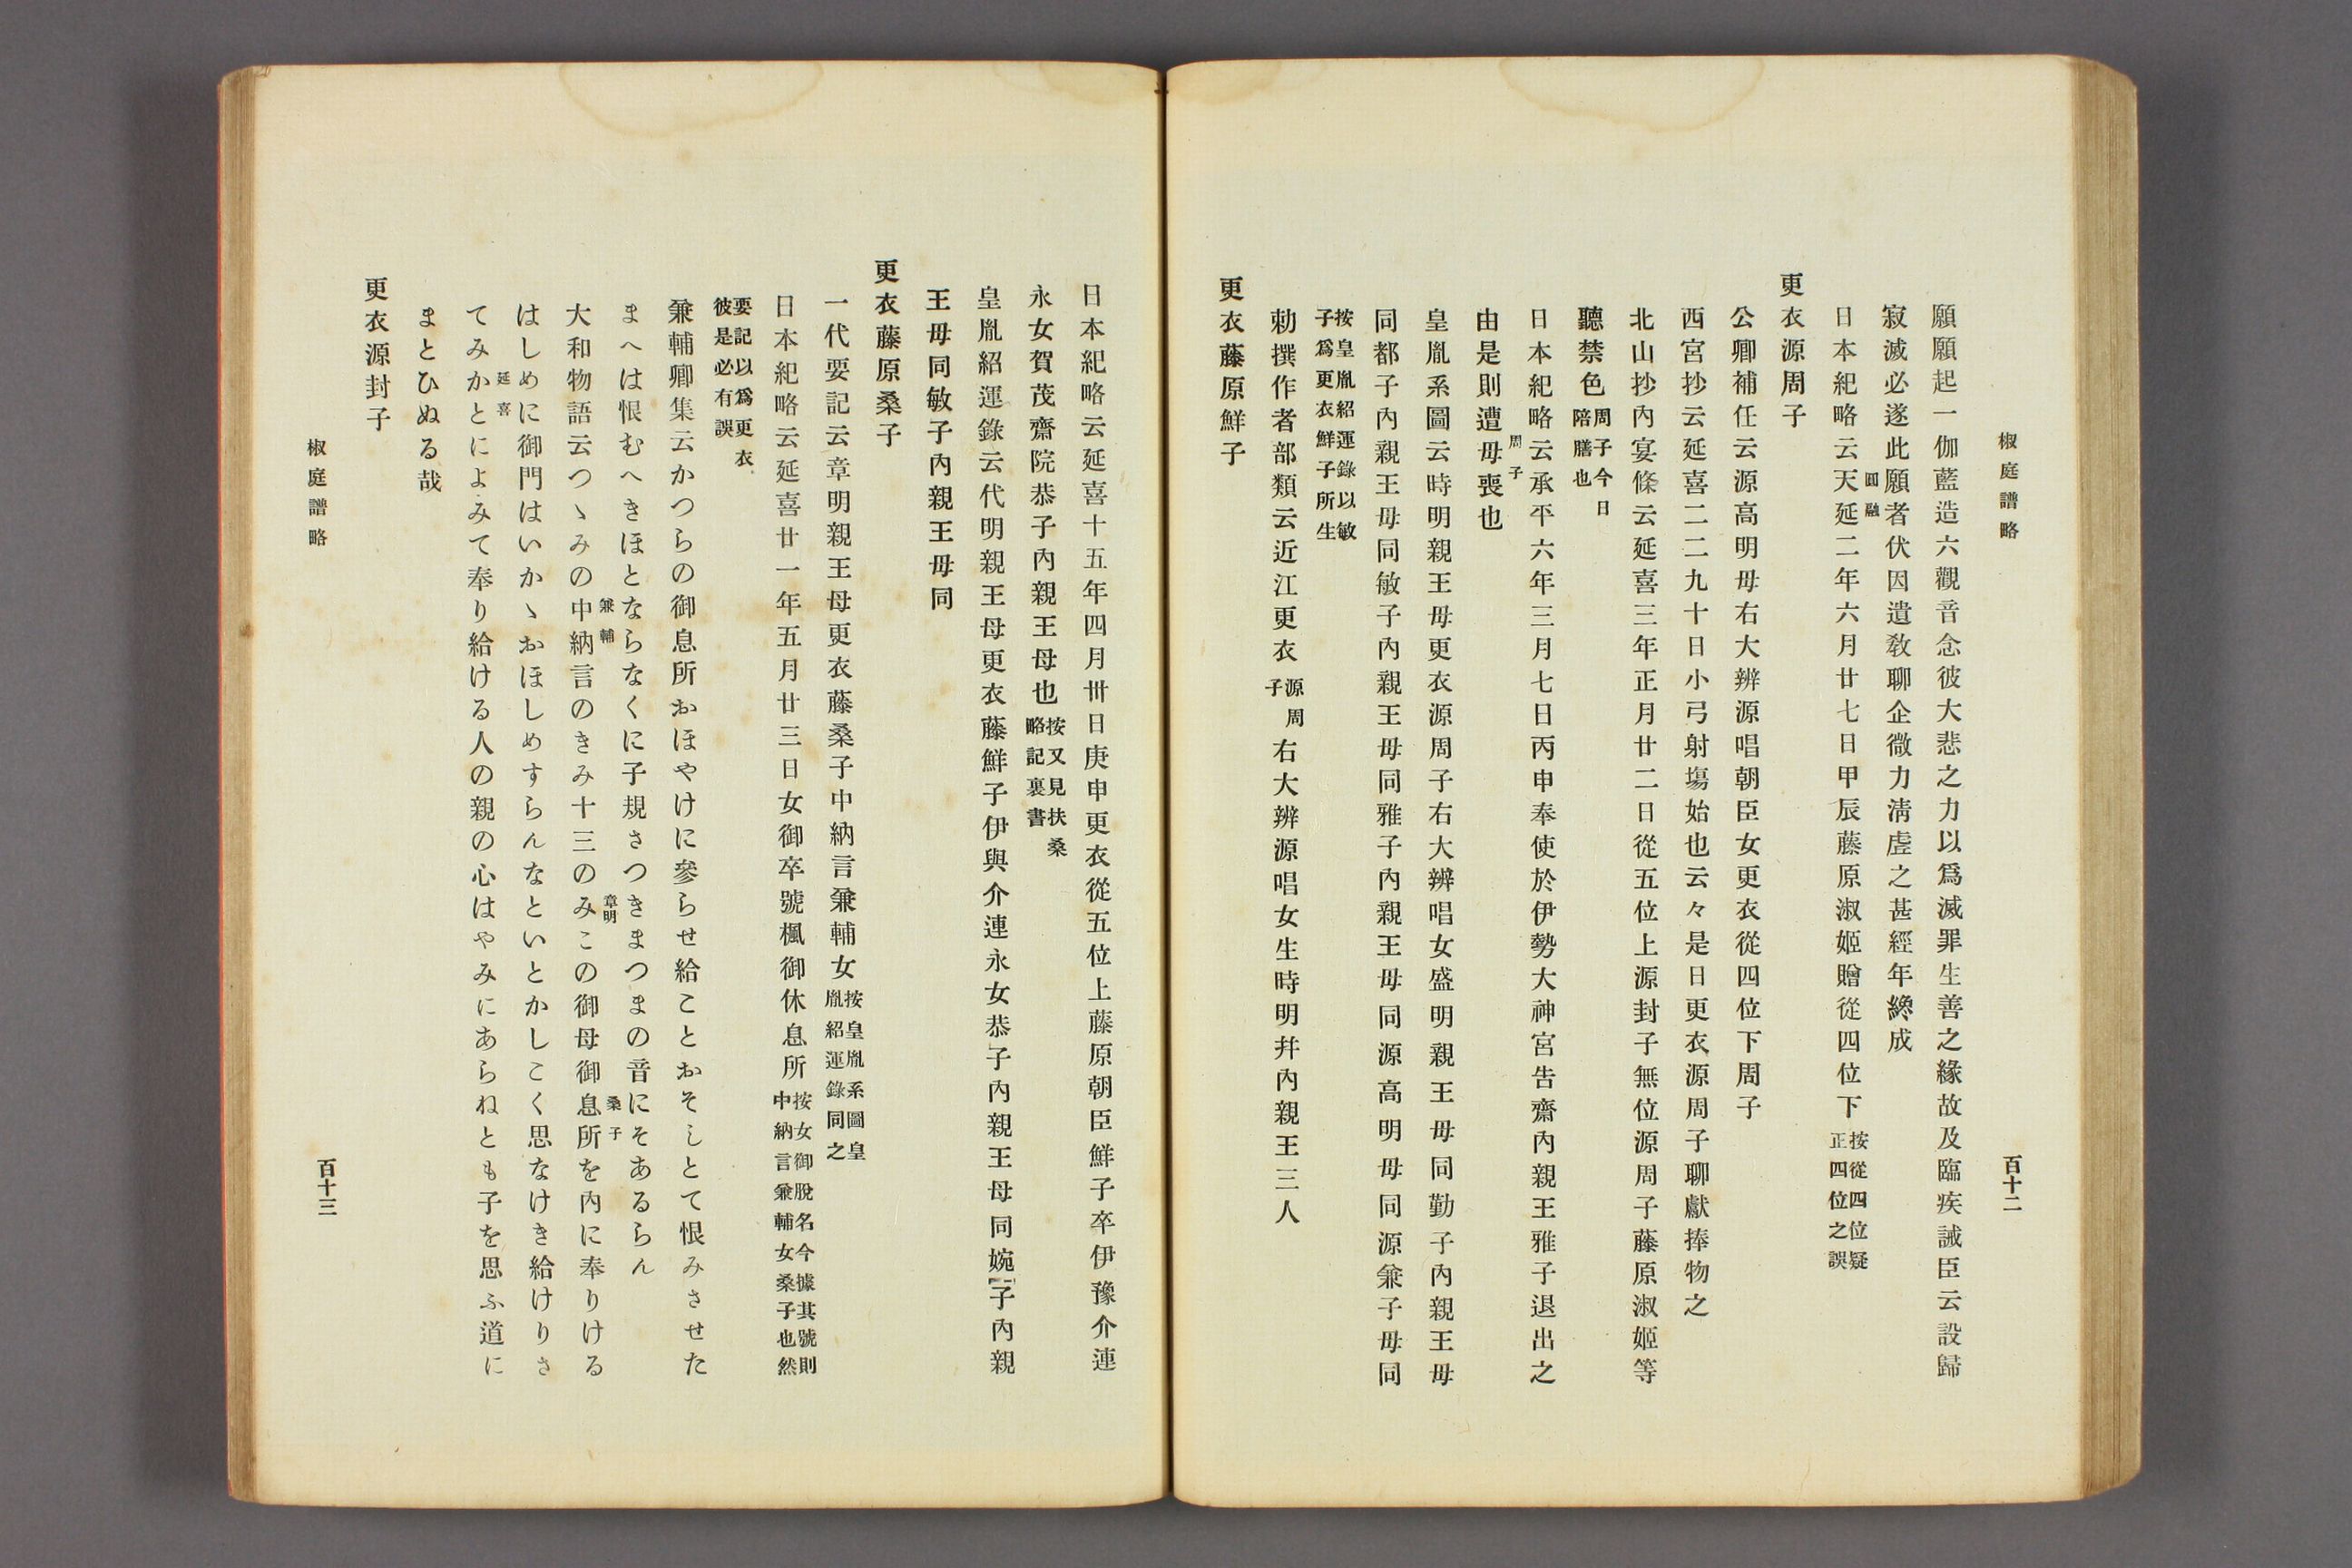 椒庭譜略
百十二
願願起一伽藍造六觀音念彼大悲之力以爲滅罪生善之緣故及臨疾誡臣云設歸
寂滅必遂此願者伏因遺敎聊企微力淸虛之甚經年纔成
圓融
日本紀略云天延二年六月廿七日甲辰藤原淑姬贈從四位下
按從四位疑
正四位之誤
更衣源周子
公卿補任云源高明母右大辨源唱朝臣女更衣從四位下周子
西宮抄云延喜二二九十日小弓射塲始也云々是日更衣源周子聊獻捧物之
北山抄內宴條云延喜三年正月廿二日從五位上源封子無位源周子藤原淑姬等
聽禁色
周子今日
陪膳也
日本紀略云承平六年三月七日丙申奉使於伊勢大神宮告齋內親王雅子退出之
周子
由是則遭母喪也
皇胤系圖云時明親王母更衣源周子右大辨唱女盛明親王母同勤子內親王母
同都子內親王母同敏子內親王母同雅子內親王母同源高明母同源兼子母同
按皇胤紹運錄以敏
子爲更衣鮮子所生
勅撰作者部類云近江更衣
源周
子
右大辨源唱女生時明幷內親王三人
更衣藤原鮮子
日本紀略云延喜十五年四月卅日庚申更衣從五位上藤原朝臣鮮子卒伊豫介連
永女賀茂齋院恭子內親王母也
按又見扶桑
略記裏書
皇胤紹運錄云代明親王母更衣藤鮮子伊與介連永女恭子內親王母同婉子內親
王母同敏子內親王母同
更衣藤原桑子
一代要記云章明親王母更衣藤桑子中納言兼輔女
按皇胤系圖皇
胤紹運錄同之
日本紀略云延喜廿一年五月廿三日女御卒號楓御休息所
按女御脫名今據其號則
中納言兼輔女桑子也然
要記以爲更衣
彼是必有誤
兼輔卿集云かつらの御息所おほやけに參らせ給ことおそしとて恨みさせた
まへは恨むへきほとならなくに子規さつきまつまの音にそあるらん
兼輔
章明
桑子
大和物語云つゝみの中納言のきみ十三のみこの御母御息所を內に奉りける
はしめに御門はいかゝおほしめすらんなといとかしこく思なけき給けりさ
延喜
てみかとによみて奉り給ける人の親の心はやみにあらねとも子を思ふ道に
まとひぬる哉
更衣源封子
椒庭譜略
百十三